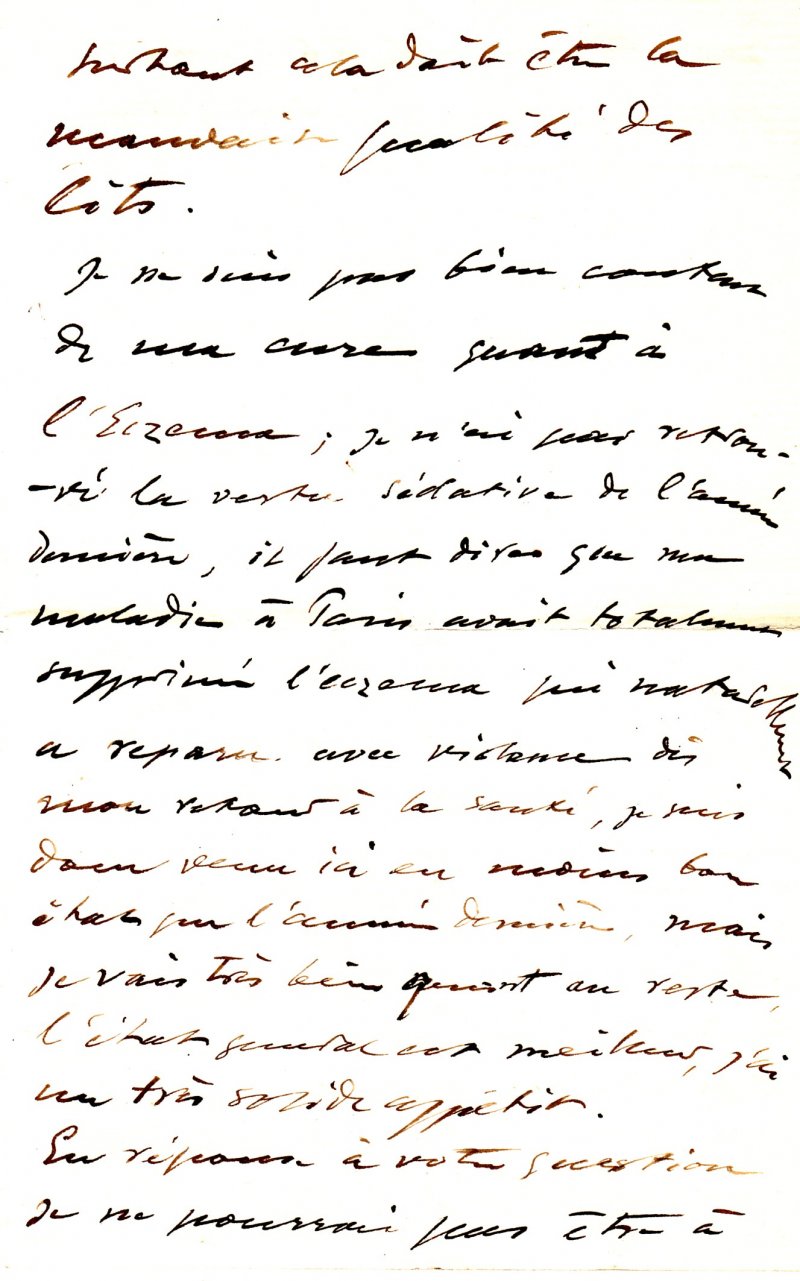 surtout cela doit être la
mauvaise qualité des
lits.
Je ne suis pas bien content
de ma cure quant à
l'Eczema ; je n'ai pas retrou-
-vé la vertu sédative de l'année
dernière, il faut dire que ma
maladie à Paris avait totalement
supprimé l'eczema qui naturellement
a reparu avec violence dès
mon retour à la santé, je suis
donc venu ici en moins bon
état que l'année dernière, mais
je vais très bien quant au reste,
l'état general est meilleur, j'ai
un très solide appétit.
En réponse à votre question
je ne pourrai pas être à